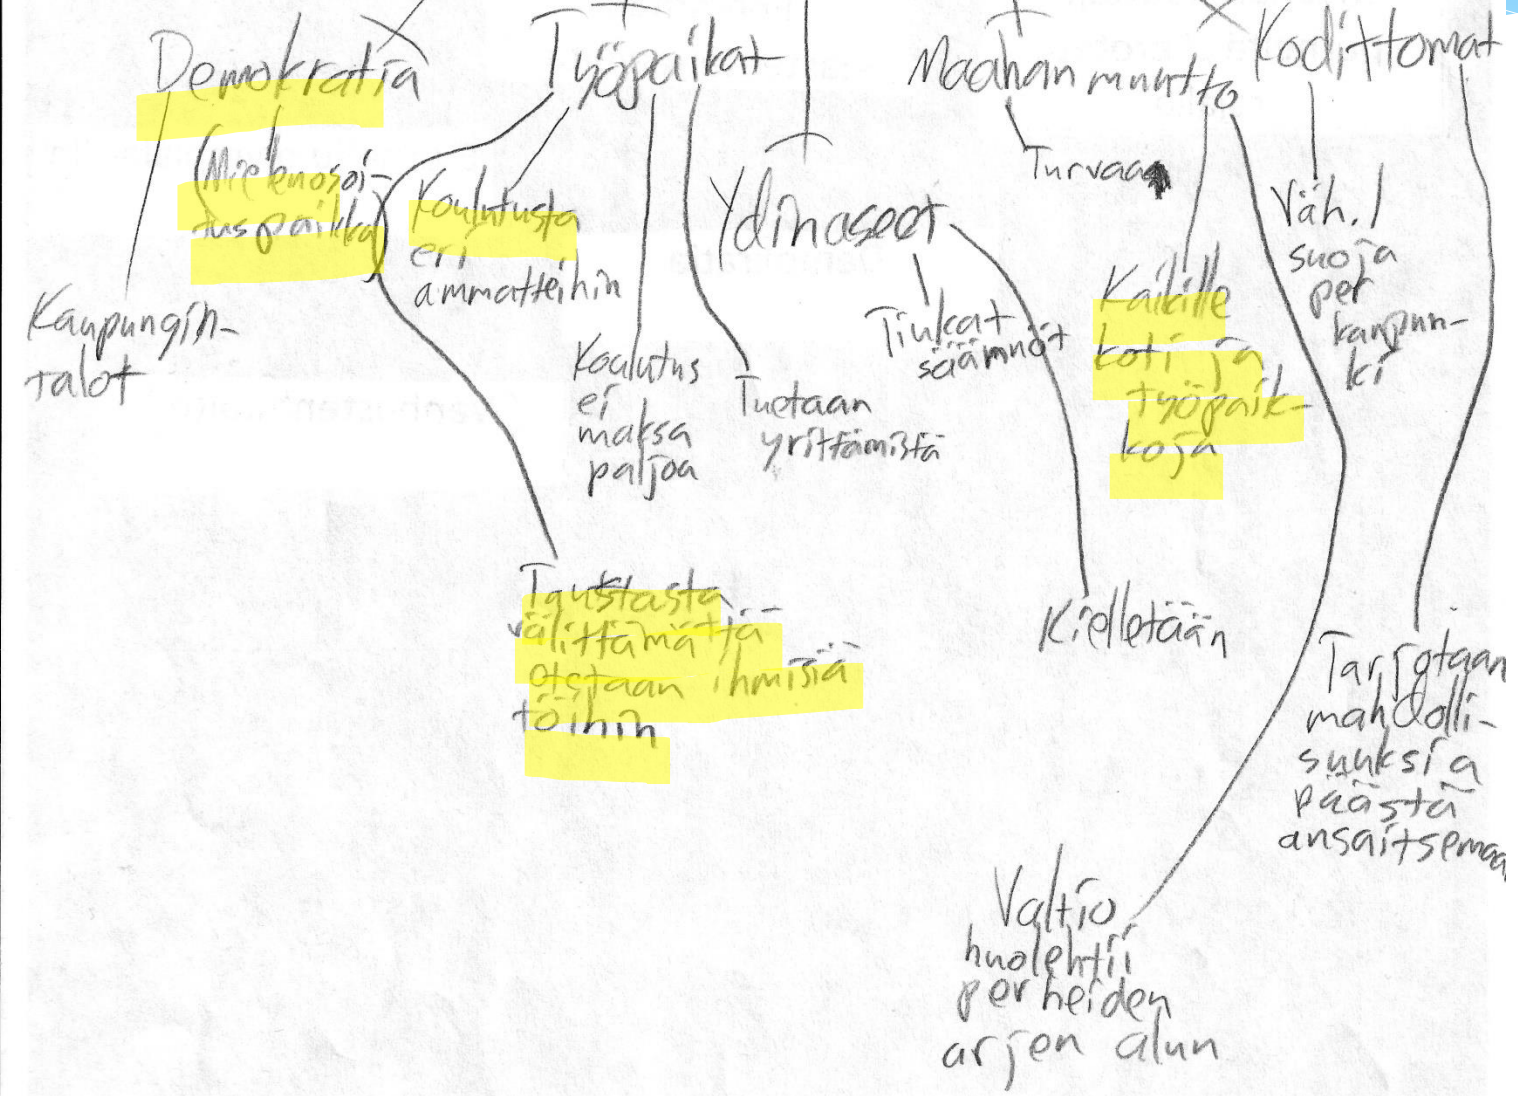 Demokratia
(Mielenosoi-
tuspaikka)
Kaupungin-
talot
Työpaikat
Koulutusta
eri
ammatteihin
Koulutus
ei
maksa
paljoa
Tuetaan
yrittämistä
Taustasta
välittämättä
otetaan ihmisiä
töihin
Ydinaseet
Tiukat
säännöt
Kielletään
Maahanmuutto
Turvaa
Kaikille
koti ja
työpaik-
koja
Valtio
huolehtii
perheiden
arjen alun
Kodittomat
Väh. 1
suoja
per
kaupun-
ki
Tarjotaan
mahdolli-
suuksia
päästä
ansaitsemaa